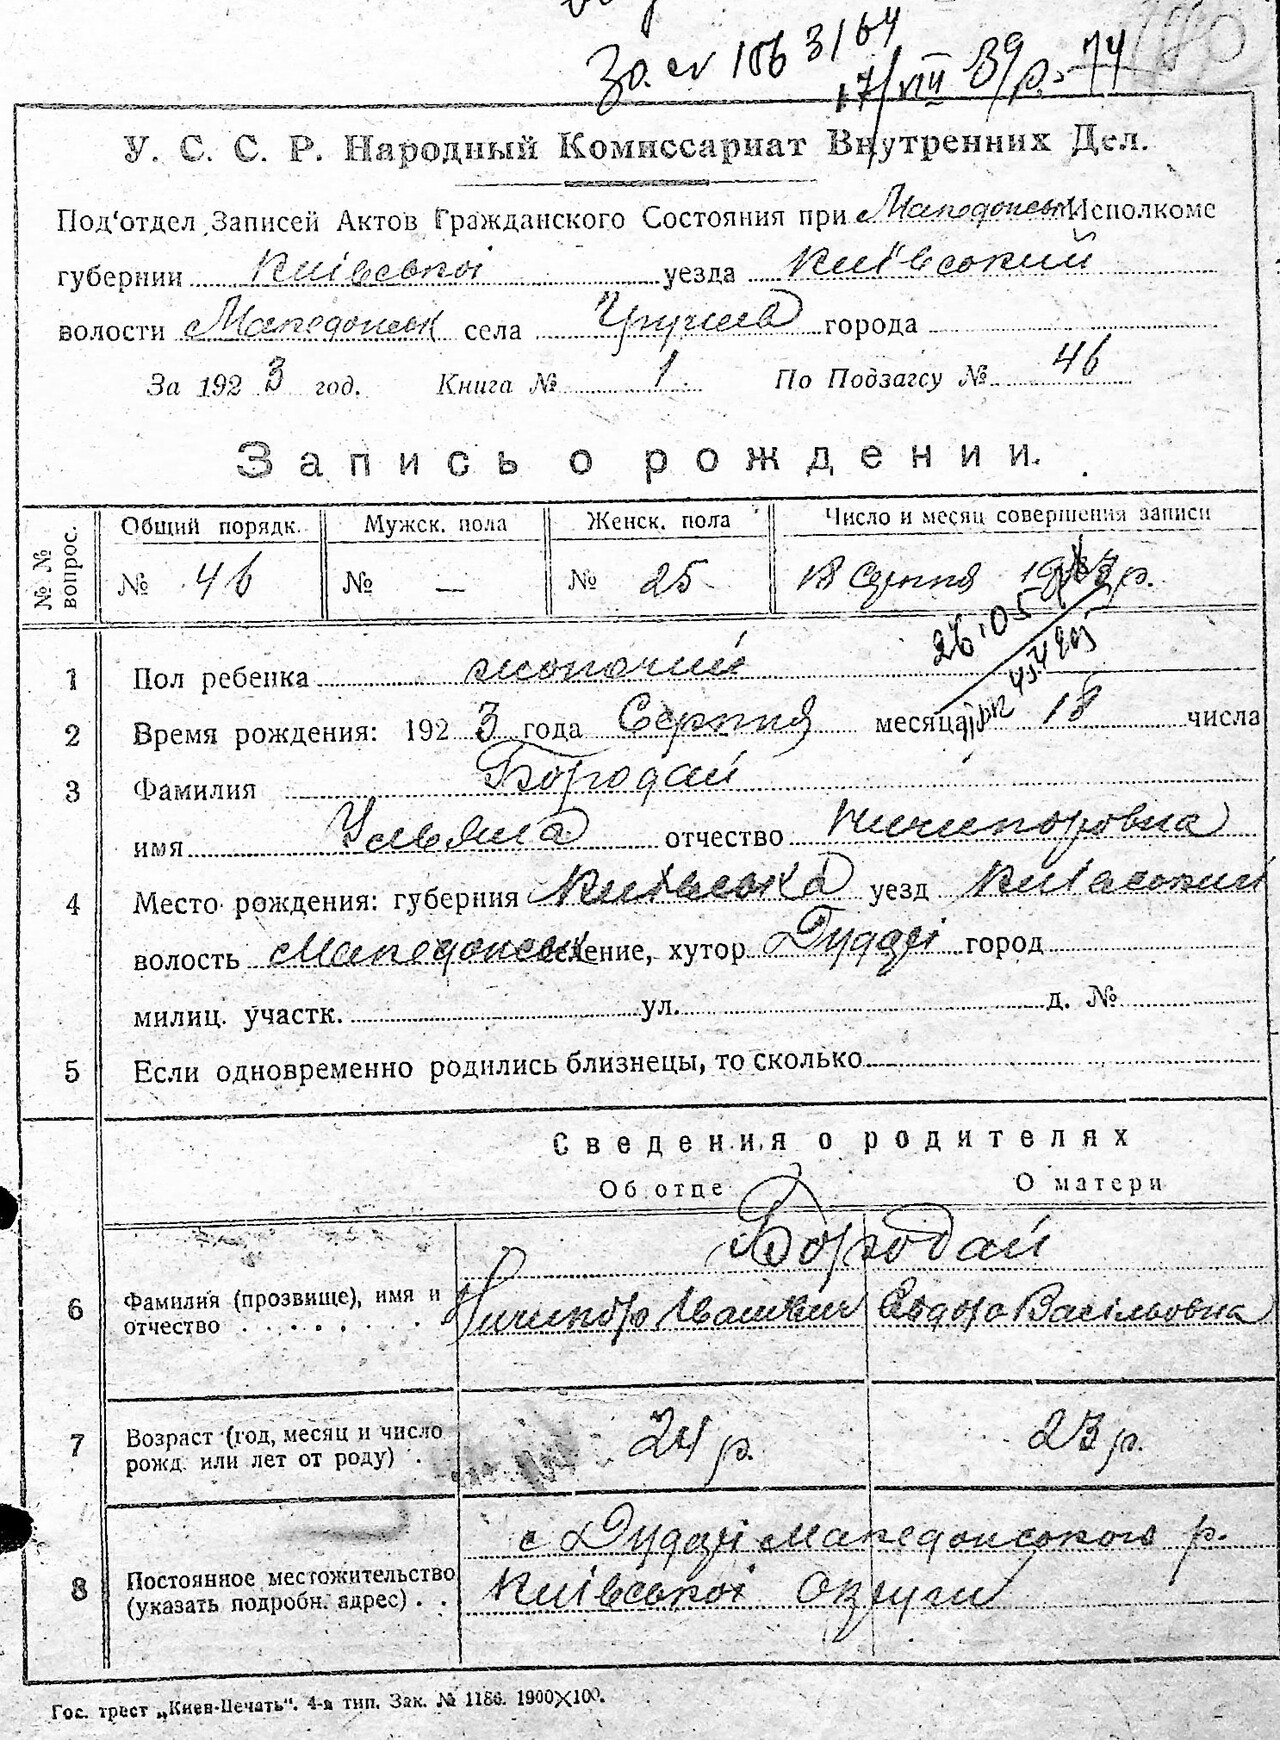 17/VIII 39 р. 74
У. С. С. Р. Народный Комиссариат Внутренних Дел.
Под'отдел Записей Актов Гражданского Состояния при Македонськ Исполкоме
губернии Київської уезда Київський
волости Македонськ села города
За 1923 год. Книга № 1. По Подзагсу № 46
Запись о рождении.
№№ вопрос. Общий порядк. Мужск. пола Женск. пола Число и месяц совершения записи
№ 46 № — № 25 18 Серпня р.
1 Пол ребенка жіночий
2 Время рождения: 1923 года Серпня месяца 18 числа
3 Фамилия Бородай
имя Ульяна отчество Ничипоровна
4 Место рождения: губерния Київська уезд Київский
волость Македонськ селение, хутор Дударі город
милиц. участк. ул. д. №
5 Если одновременно родились близнецы, то сколько
Сведения о родителях
Об отце О матери
Бородай
6 Фамилия (прозвище), имя и Ничипор Івашкич Евдора Васільовна
отчество
7 Возраст (год, месяц и число 24 р. 23 р.
рожд. или лет от роду)
с Дударі Македонського р.
8 Постоянное местожительство Київської Округи
(указать подробн. адрес)
Гос. трест „Киев-Печать". 4-я тип. Зак. № 1186. 1900×100.